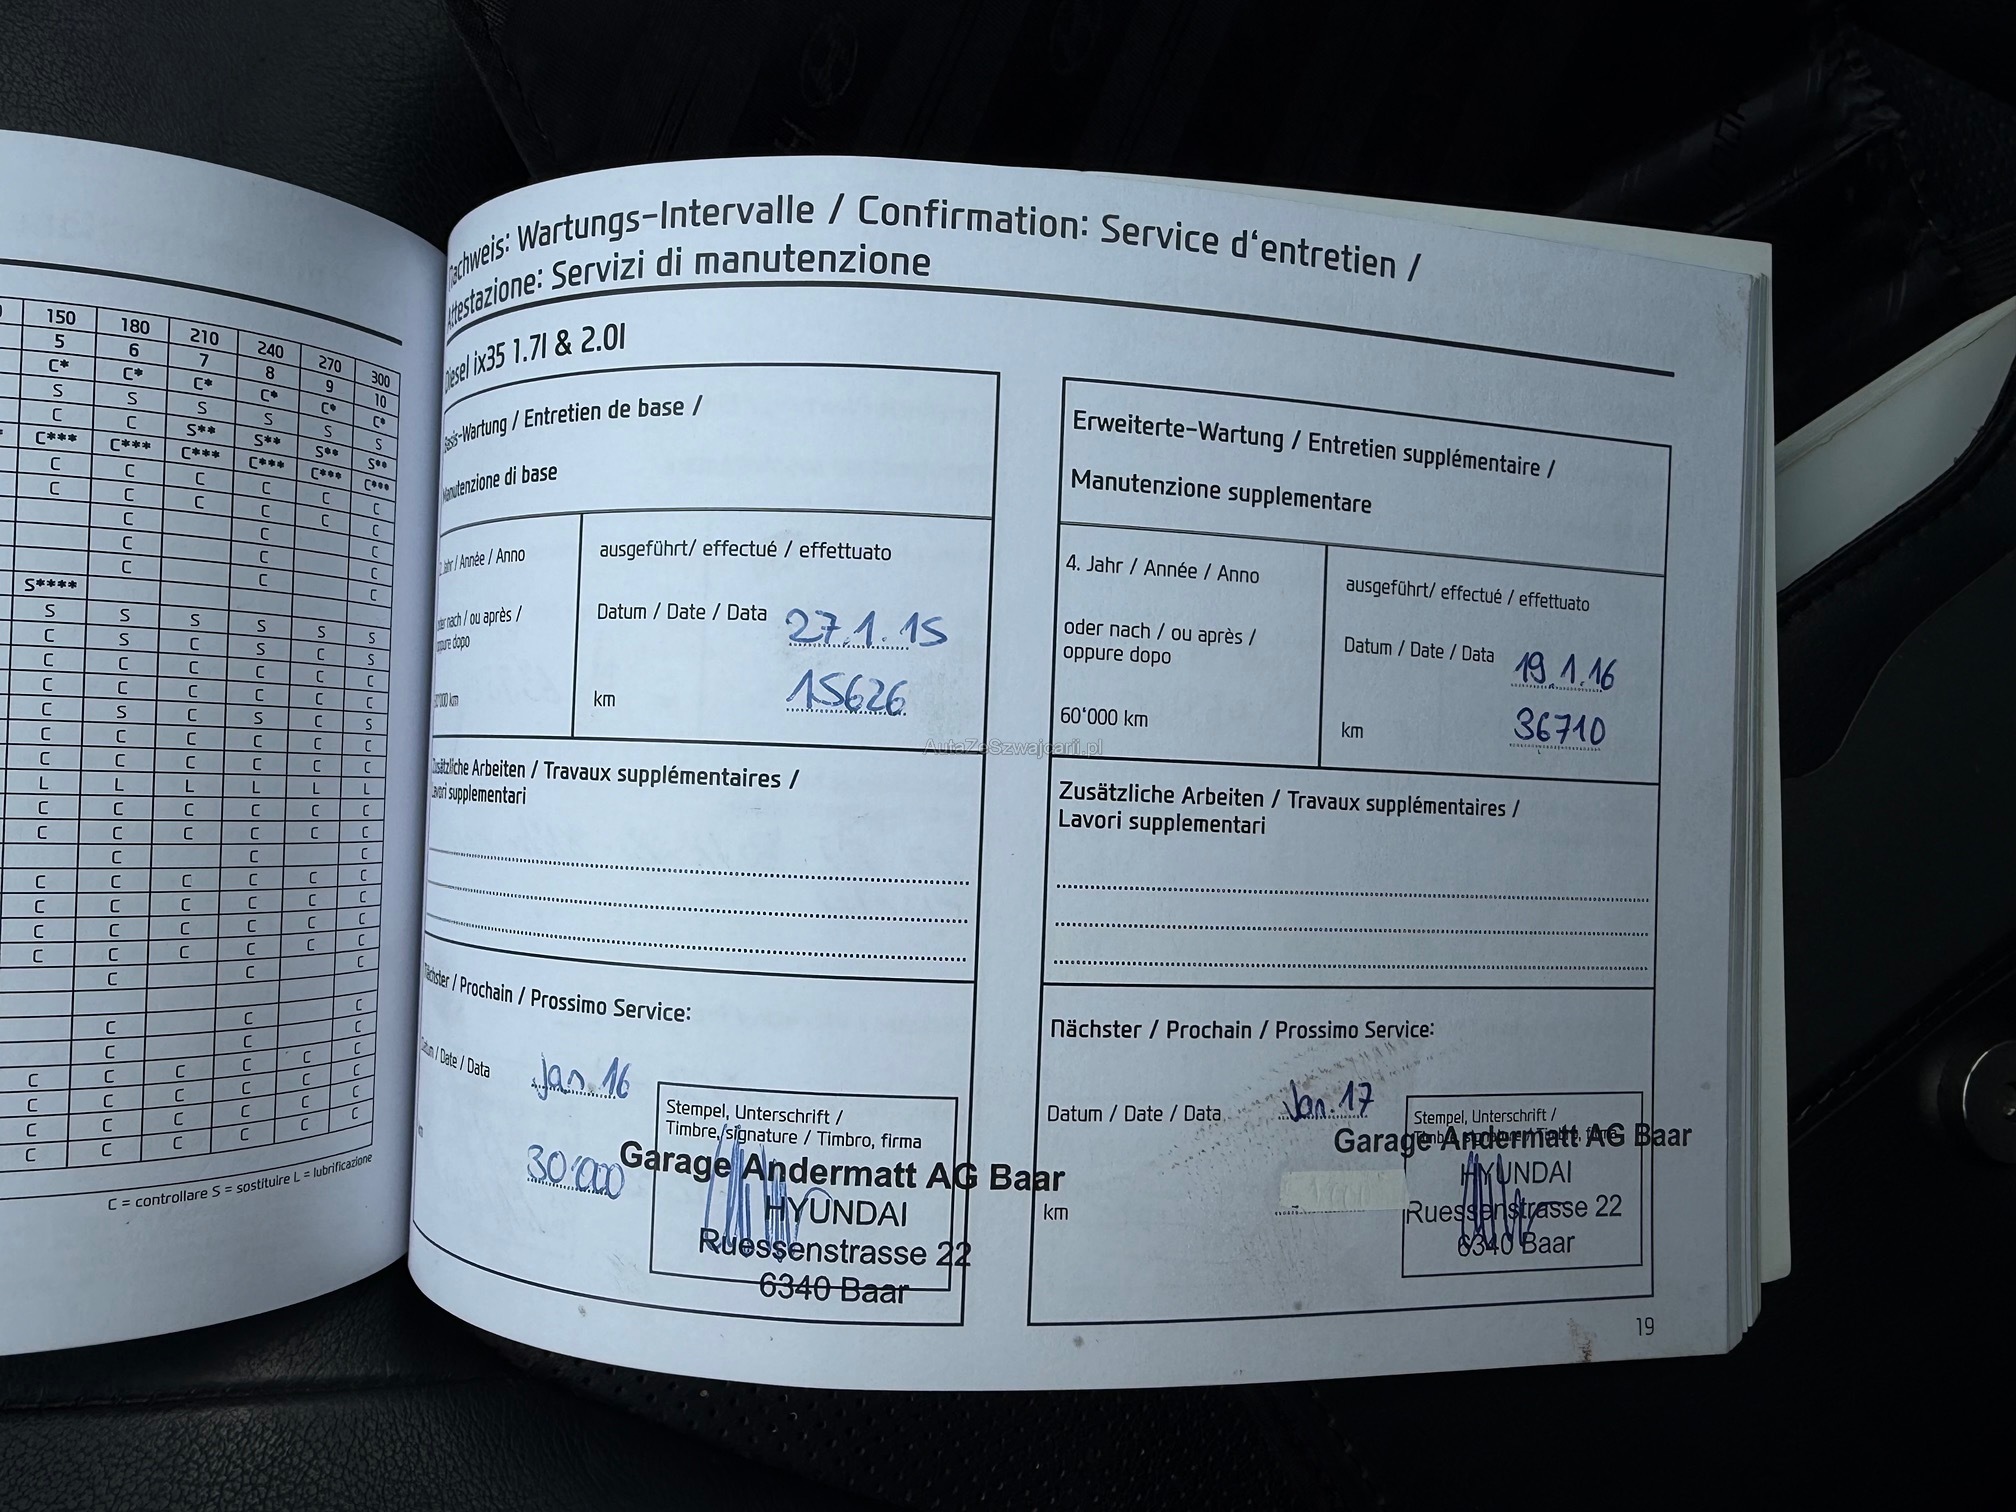 150 180 210 240 270 300
5 6 7 8 9 10
C* C* C* C* C* C*
S S S S S S
C C S** S** S** S**
C*** C*** C*** C*** C*** C***
C C C C C C
C C C C C C
C C C
C C C
C C C
S****
S S S S S S
C S C S C S
C C C C C C
C C C C C C
C S C S C S
C C C C C C
C C C C C C
L L L L L L
C C C C C C
C C C C C C
C C C
C C C C C C
C C C C C C
C C C C C C
C C C C C C
C C C
C C C
C C C
C C C C C C
C C C C C C
C C C C C C
C C C C C C
C = controllare S = sostituire L = lubrificazione
Nachweis: Wartungs-Intervalle / Confirmation: Service d'entretien /
Attestazione: Servizi di manutenzione
Diesel ix35 1.7l & 2.0l
Basis-Wartung / Entretien de base /
Manutenzione di base
Jahr / Année / Anno
oder nach / ou après /
oppure dopo
ausgeführt/ effectué / effettuato
Datum / Date / Data 27.1.15
km 15626
Zusätzliche Arbeiten / Travaux supplémentaires /
Lavori supplementari
Nächster / Prochain / Prossimo Service:
Datum / Date / Data Jan. 16
km 30'000
Stempel, Unterschrift /
Timbre, signature / Timbro, firma
Garage Andermatt AG Baar
HYUNDAI
Ruessenstrasse 22
6340 Baar
Erweiterte-Wartung / Entretien supplémentaire /
Manutenzione supplementare
4. Jahr / Année / Anno
oder nach / ou après /
oppure dopo
60'000 km
ausgeführt/ effectué / effettuato
Datum / Date / Data 19.1.16
km 36710
Zusätzliche Arbeiten / Travaux supplémentaires /
Lavori supplementari
Nächster / Prochain / Prossimo Service:
Datum / Date / Data Jan. 17
km
Stempel, Unterschrift /
Timbre, signature / Timbro, firma
Garage Andermatt AG Baar
HYUNDAI
Ruessenstrasse 22
6340 Baar
19
AutaZeSzwajcarii.pl